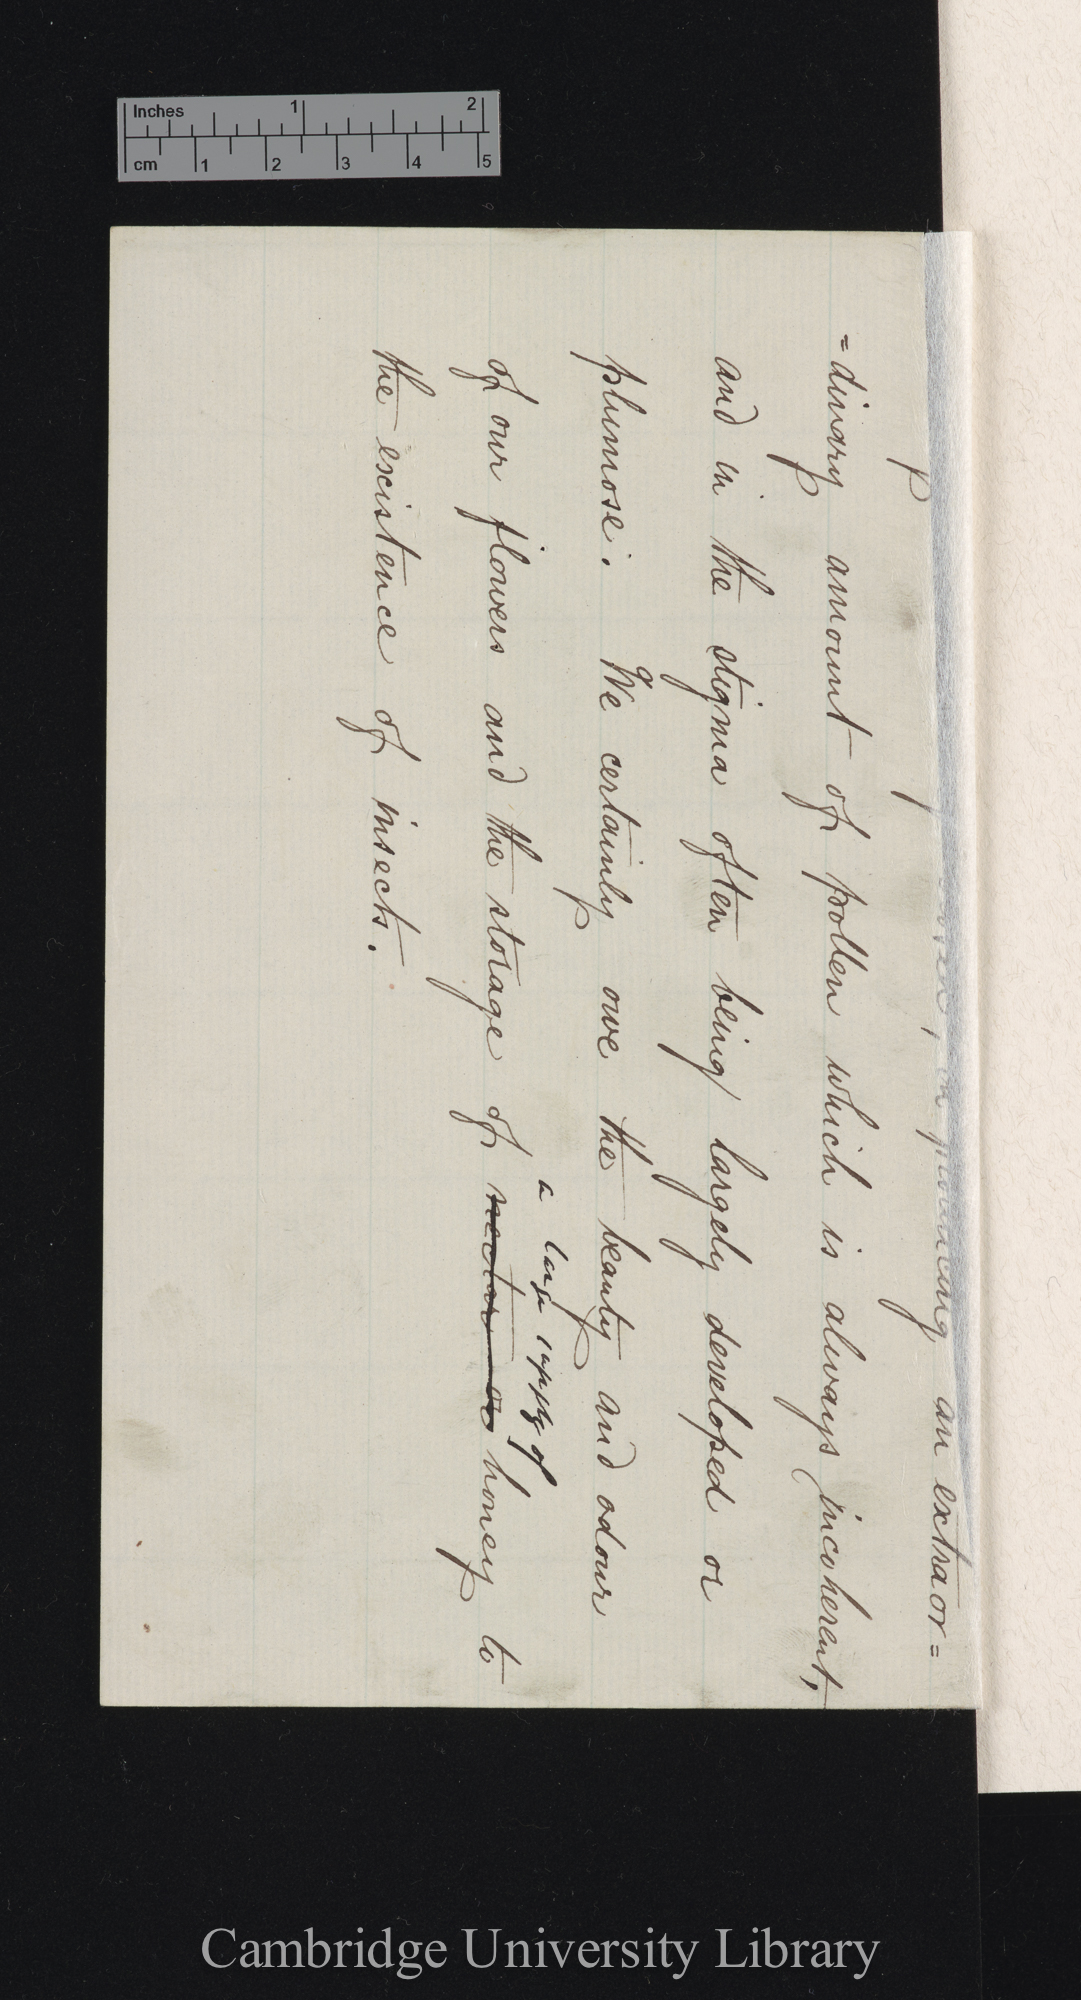 Inches 1 2
cm 1 2 3 4 5
an extraor=
=dinary amount of pollen which is always incoherent,
and in the stigma often being largely developed or
plumose. We certainly owe the beauty and odour
a large supply of
of our flowers and the storage of nectar or honey to
the existence of insects.
Cambridge University Library